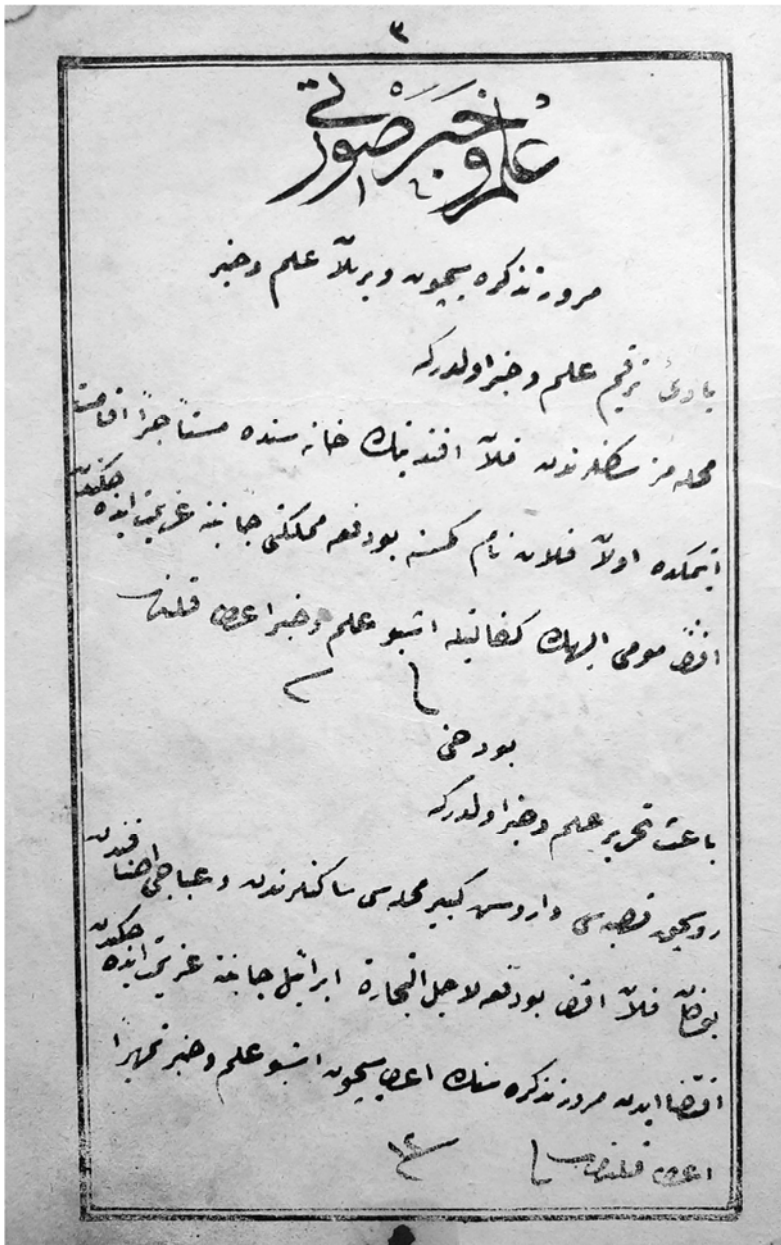 ٣
علم و خبر صورتى
مرور تذكره سيچون ويريلان علم وخبر
بادئ ترقيم علم وخبر اولدركه
محله مز سكنه لرندن فلان افندينك خانه سنده مستأجراً اقامت
ايتمكده اولان فلان نام كمسنه بودفعه مملكتى جانبنه عزيمت ايده جكندن
افندئ مومى اليهك كفالتيله اشبو علم وخبر اعطا قلندى
بودخى
باعث تحرير علم وخبر اولدركه
روسجق قصبه سى واروش كبير محله سى ساكنلرندن وعباجى اصنافندن
فلان افندى بودفعه لاجل التجارة ابرائيل جانبنه عزيمت ايده جكندن
اقتضا ايدن مرور تذكره سنك اعطاسيچون اشبو علم وخبر تمهيراً
اعطا قلندى